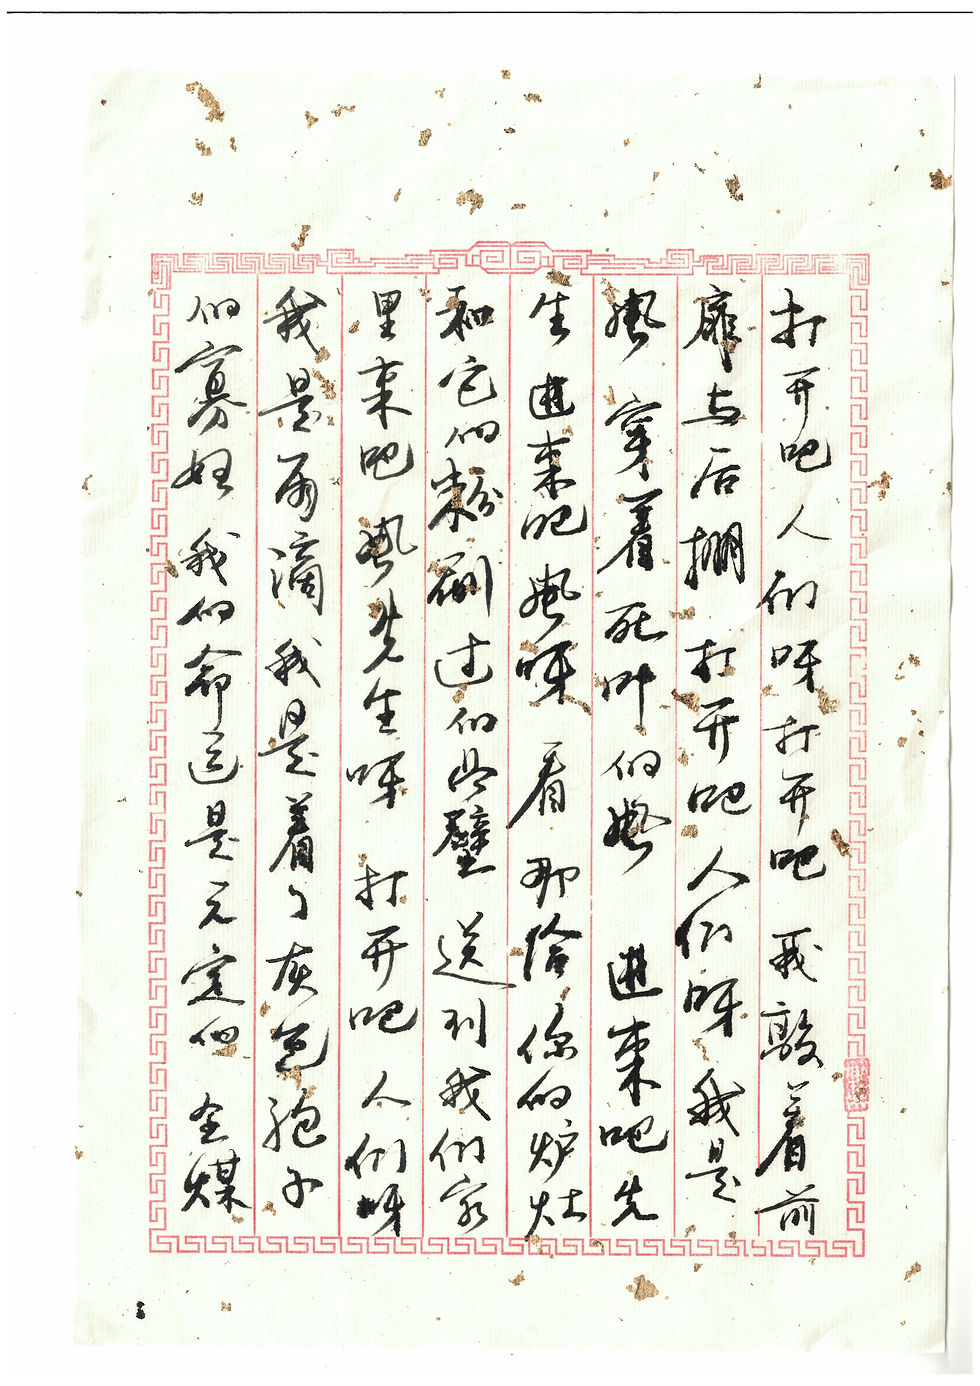 打开吧人们呀打开吧我敲着前
扉与后棚打开吧人们呀我是
風穿着死叶的風進来吧先
生進来吧風呀看那给你的炉灶
和它的粉刷过的壁送到我们家
里来吧風先生呀打开吧人们呀
我是雨滴我是着了灰色袍子
的寡妇我的命运是无定的在煤